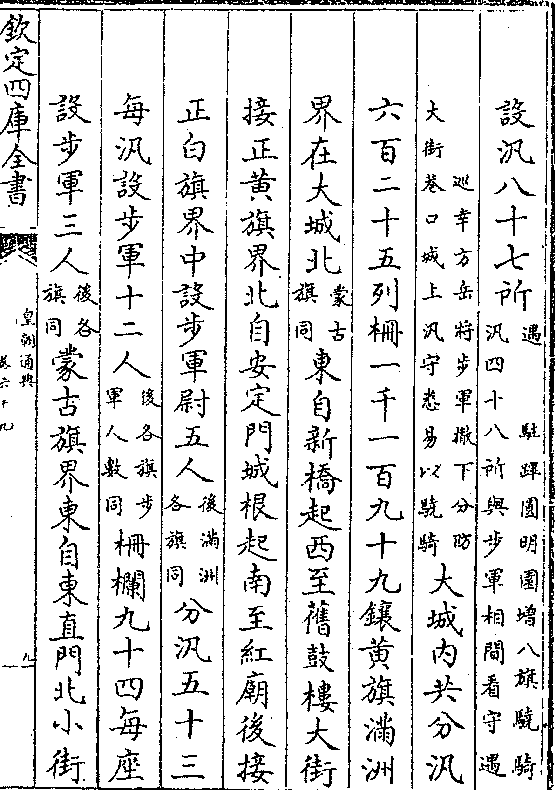 設汛八十七所遇　駐蹕圓明園增八旗驍騎汛四十八所與步軍相間看守遇
巡幸方岳將步軍撤下分防大街巷口城上汛守悉易以驍騎大城内共分汛
六百二十五列柵一千一百九十九鑲黃旗滿洲
界在大城北蒙古旗同東自新橋起西至舊鼓樓大街
接正黃旗界北自安定門城根起南至紅廟後接
正白旗界中設步軍尉五人後滿洲各旗同分汛五十三
每汛設步軍十二人後各旗步軍人數同柵欄九十四每座
設步軍三人後各旗同蒙古旗界東自東直門北小街
欽定四庫全書
皇朝通典
卷六十九
九